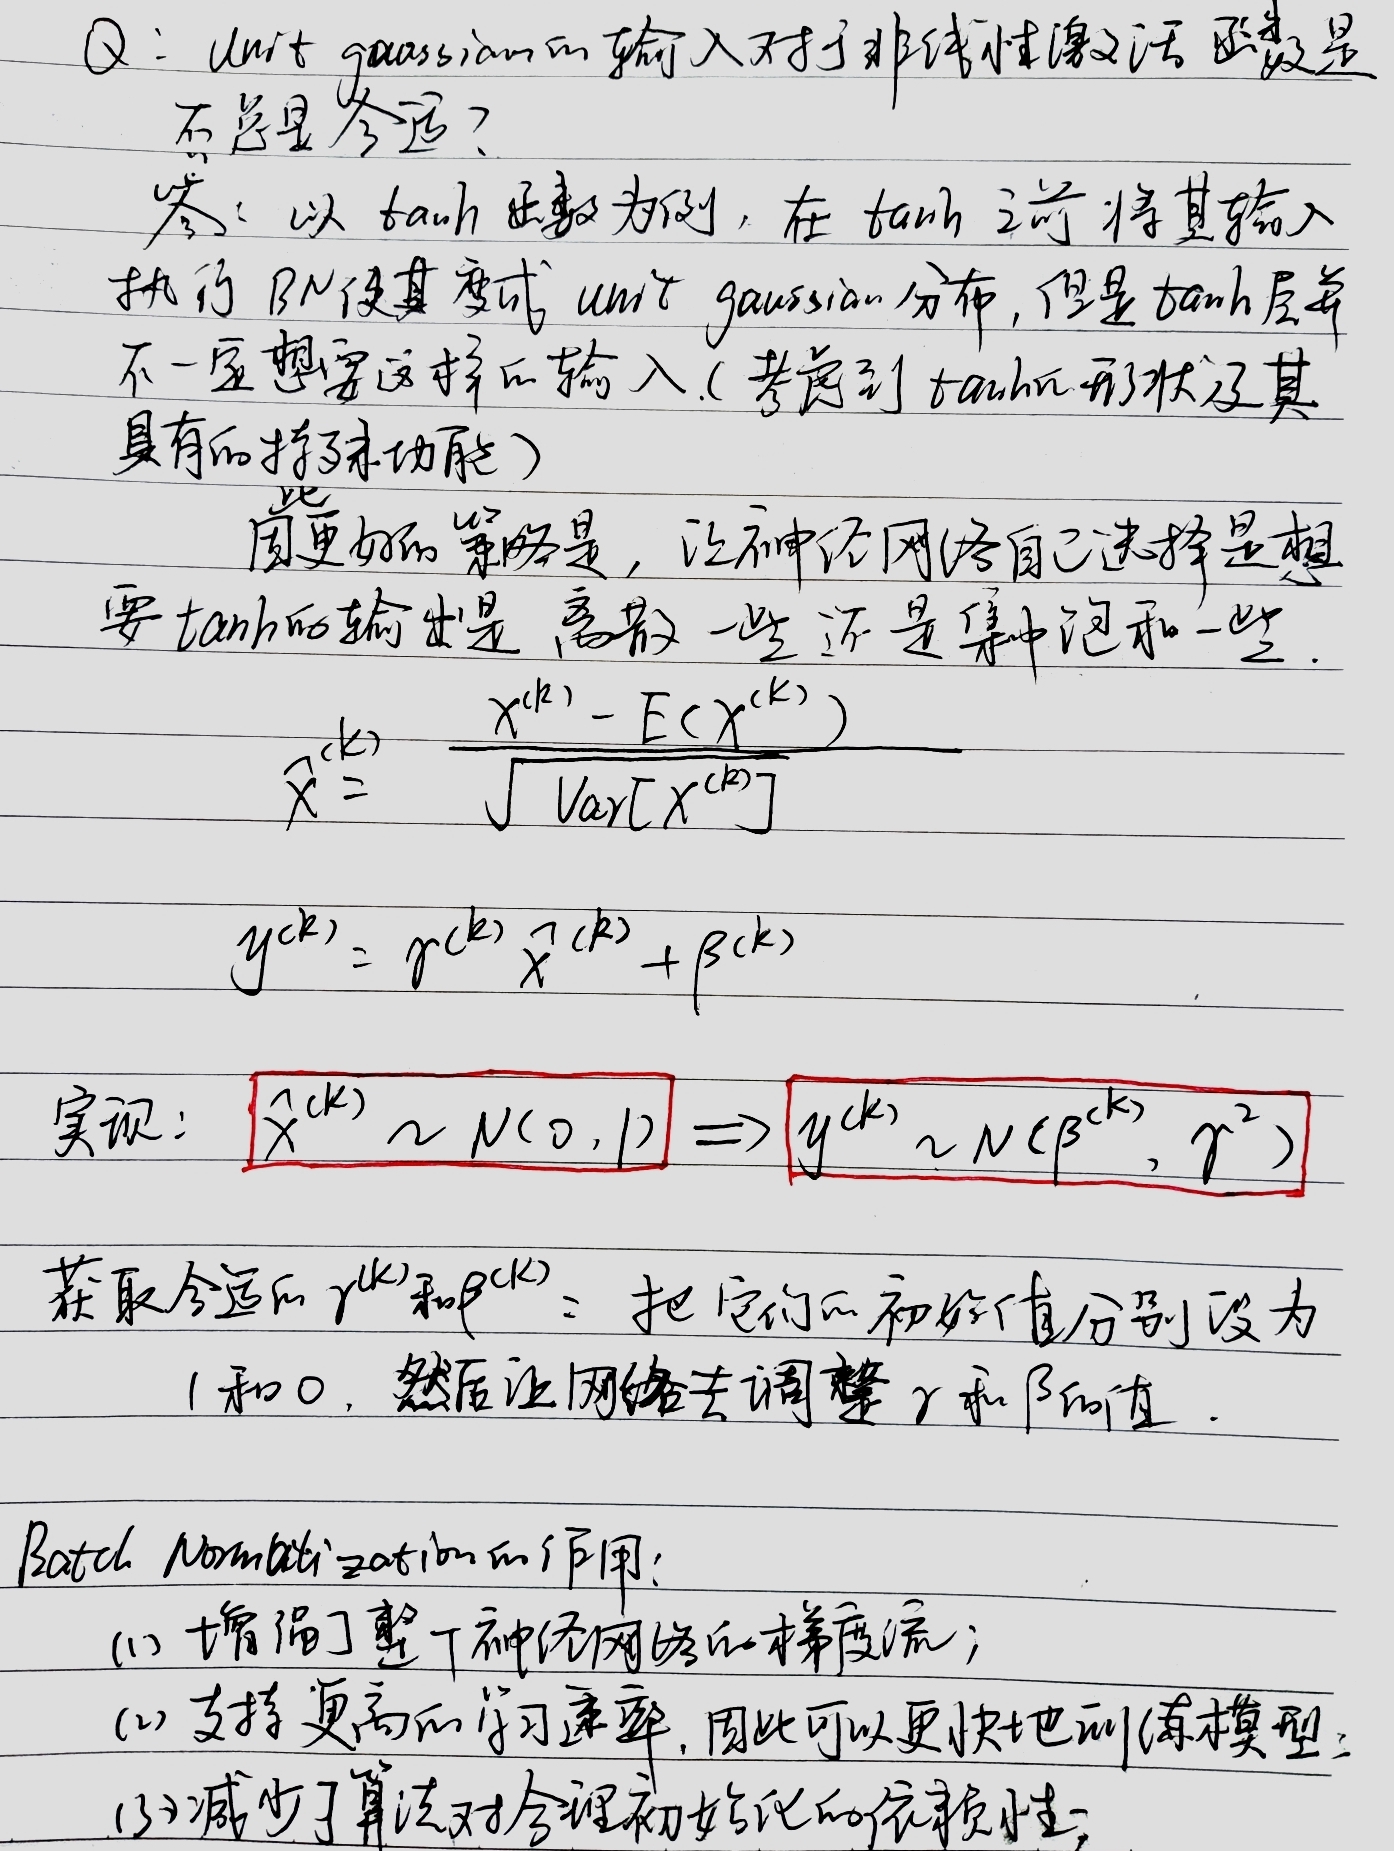 Q: Unit gaussian的输入对于非线性激活函数是
否总是合适?
答: 以 tanh 函数为例, 在 tanh 之前将其输入
执行 BN使其变成 unit gaussian分布, 但是tanh层并
不一定想要这样的输入.(考虑到tanh的形状及其
具有的特殊功能)
因此更好的策略是, 让神经网络自己选择是想
要tanh的输出是离散一些还是集中饱和一些.
x̂^(k) = (x^(k) - E(x^(k))) / √Var[x^(k)]
y^(k) = γ^(k) x̂^(k) + β^(k)
实现: x̂^(k) ~ N(0,1) => y^(k) ~ N(β^(k), γ^2)
获取合适的γ^(k)和β^(k): 把它们的初始值分别设为
1和0, 然后让网络去调整γ和β的值.
Batch Normalization的作用:
(1) 增强了整个神经网络的梯度流;
(2) 支持更高的学习速率, 因此可以更快地训练模型;
(3) 减少了算法对合理初始化的依赖性;